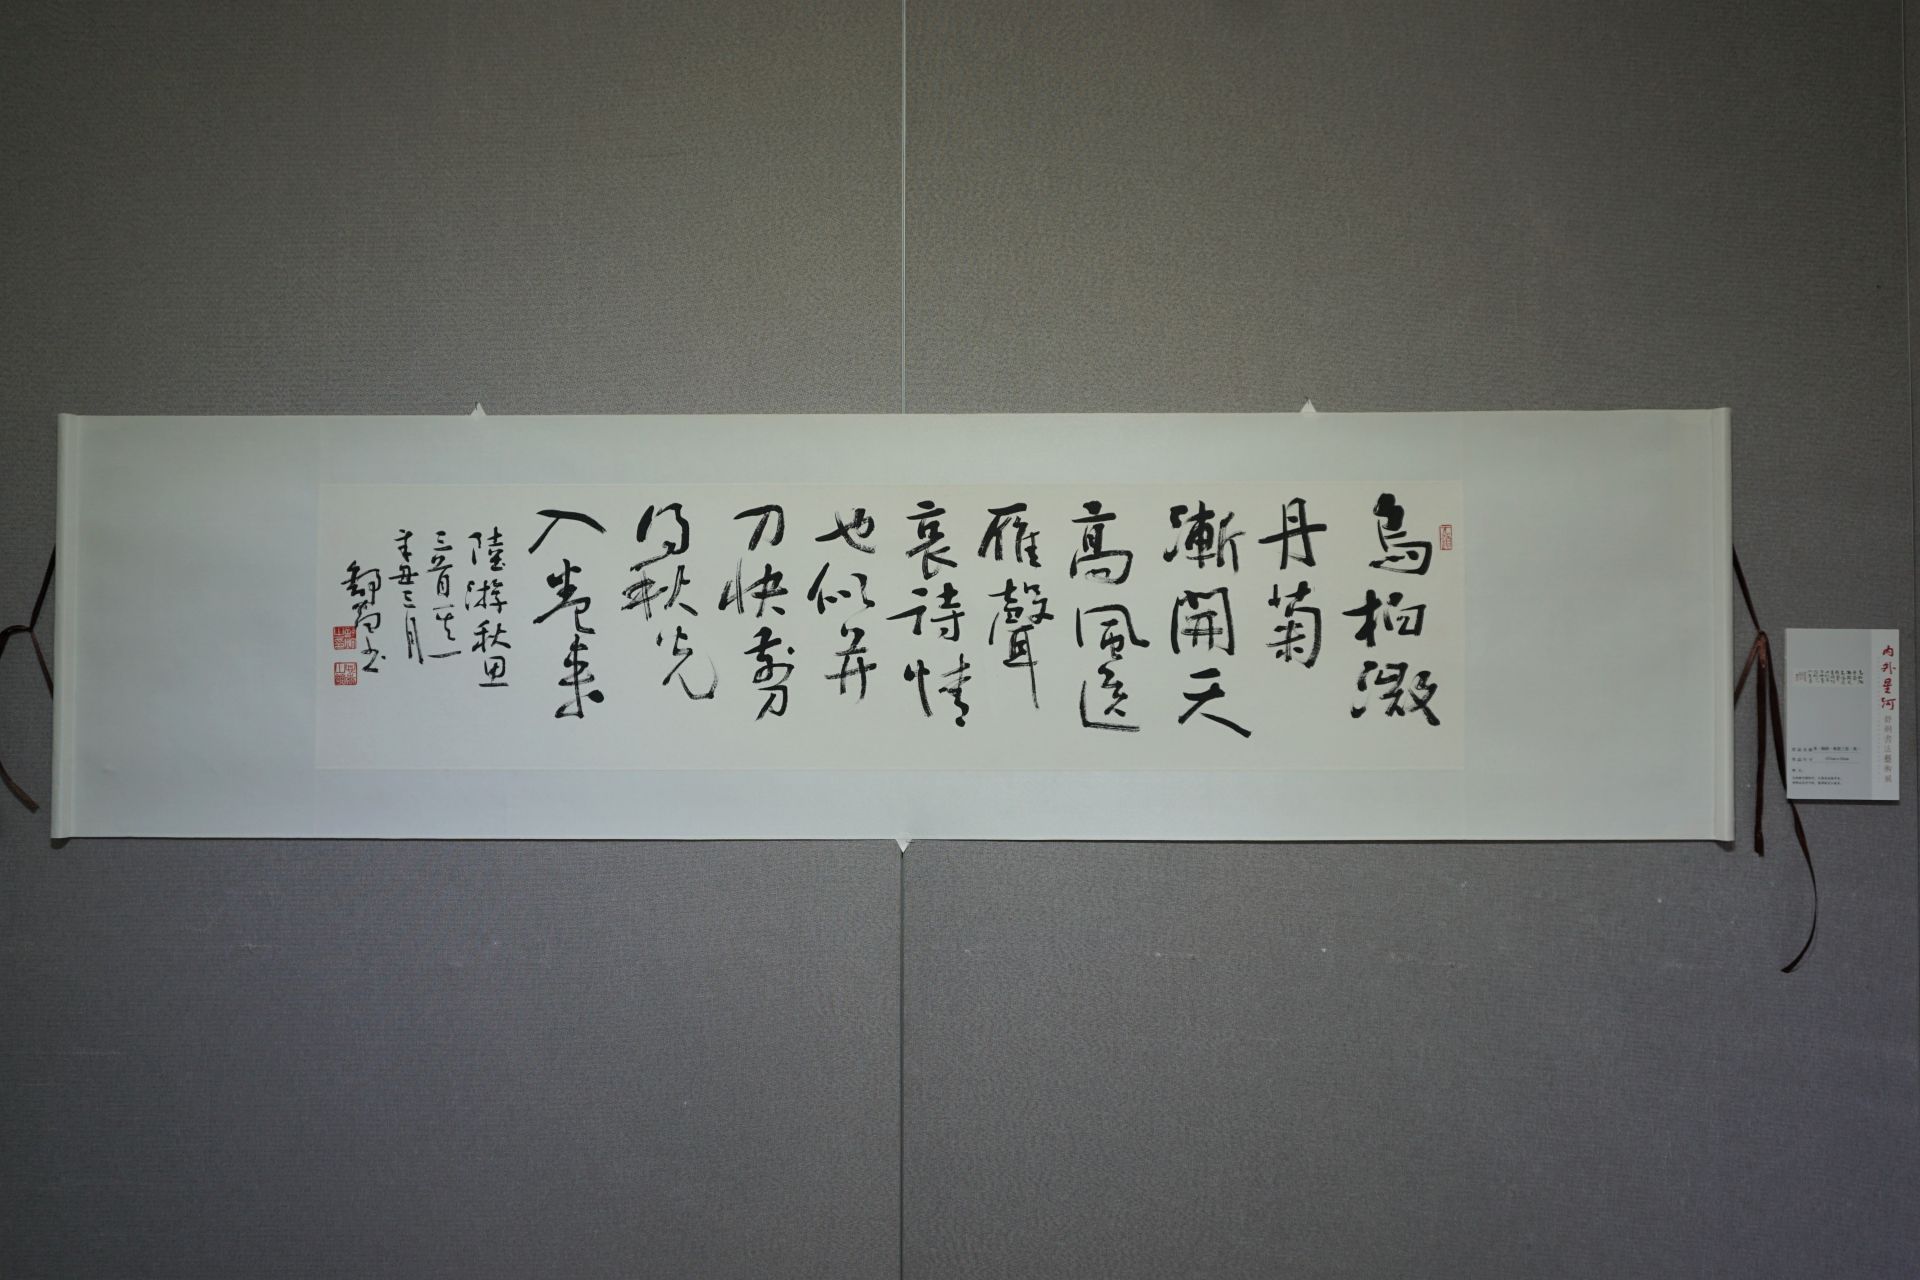 烏桕微
丹菊
漸開天
高風送
雁聲
哀詩情
也似并
刀快剪
得秋光
入卷來
陸游秋思
三首其一
辛丑三月
舒炯書
内外是河
舒炯書法藝術展